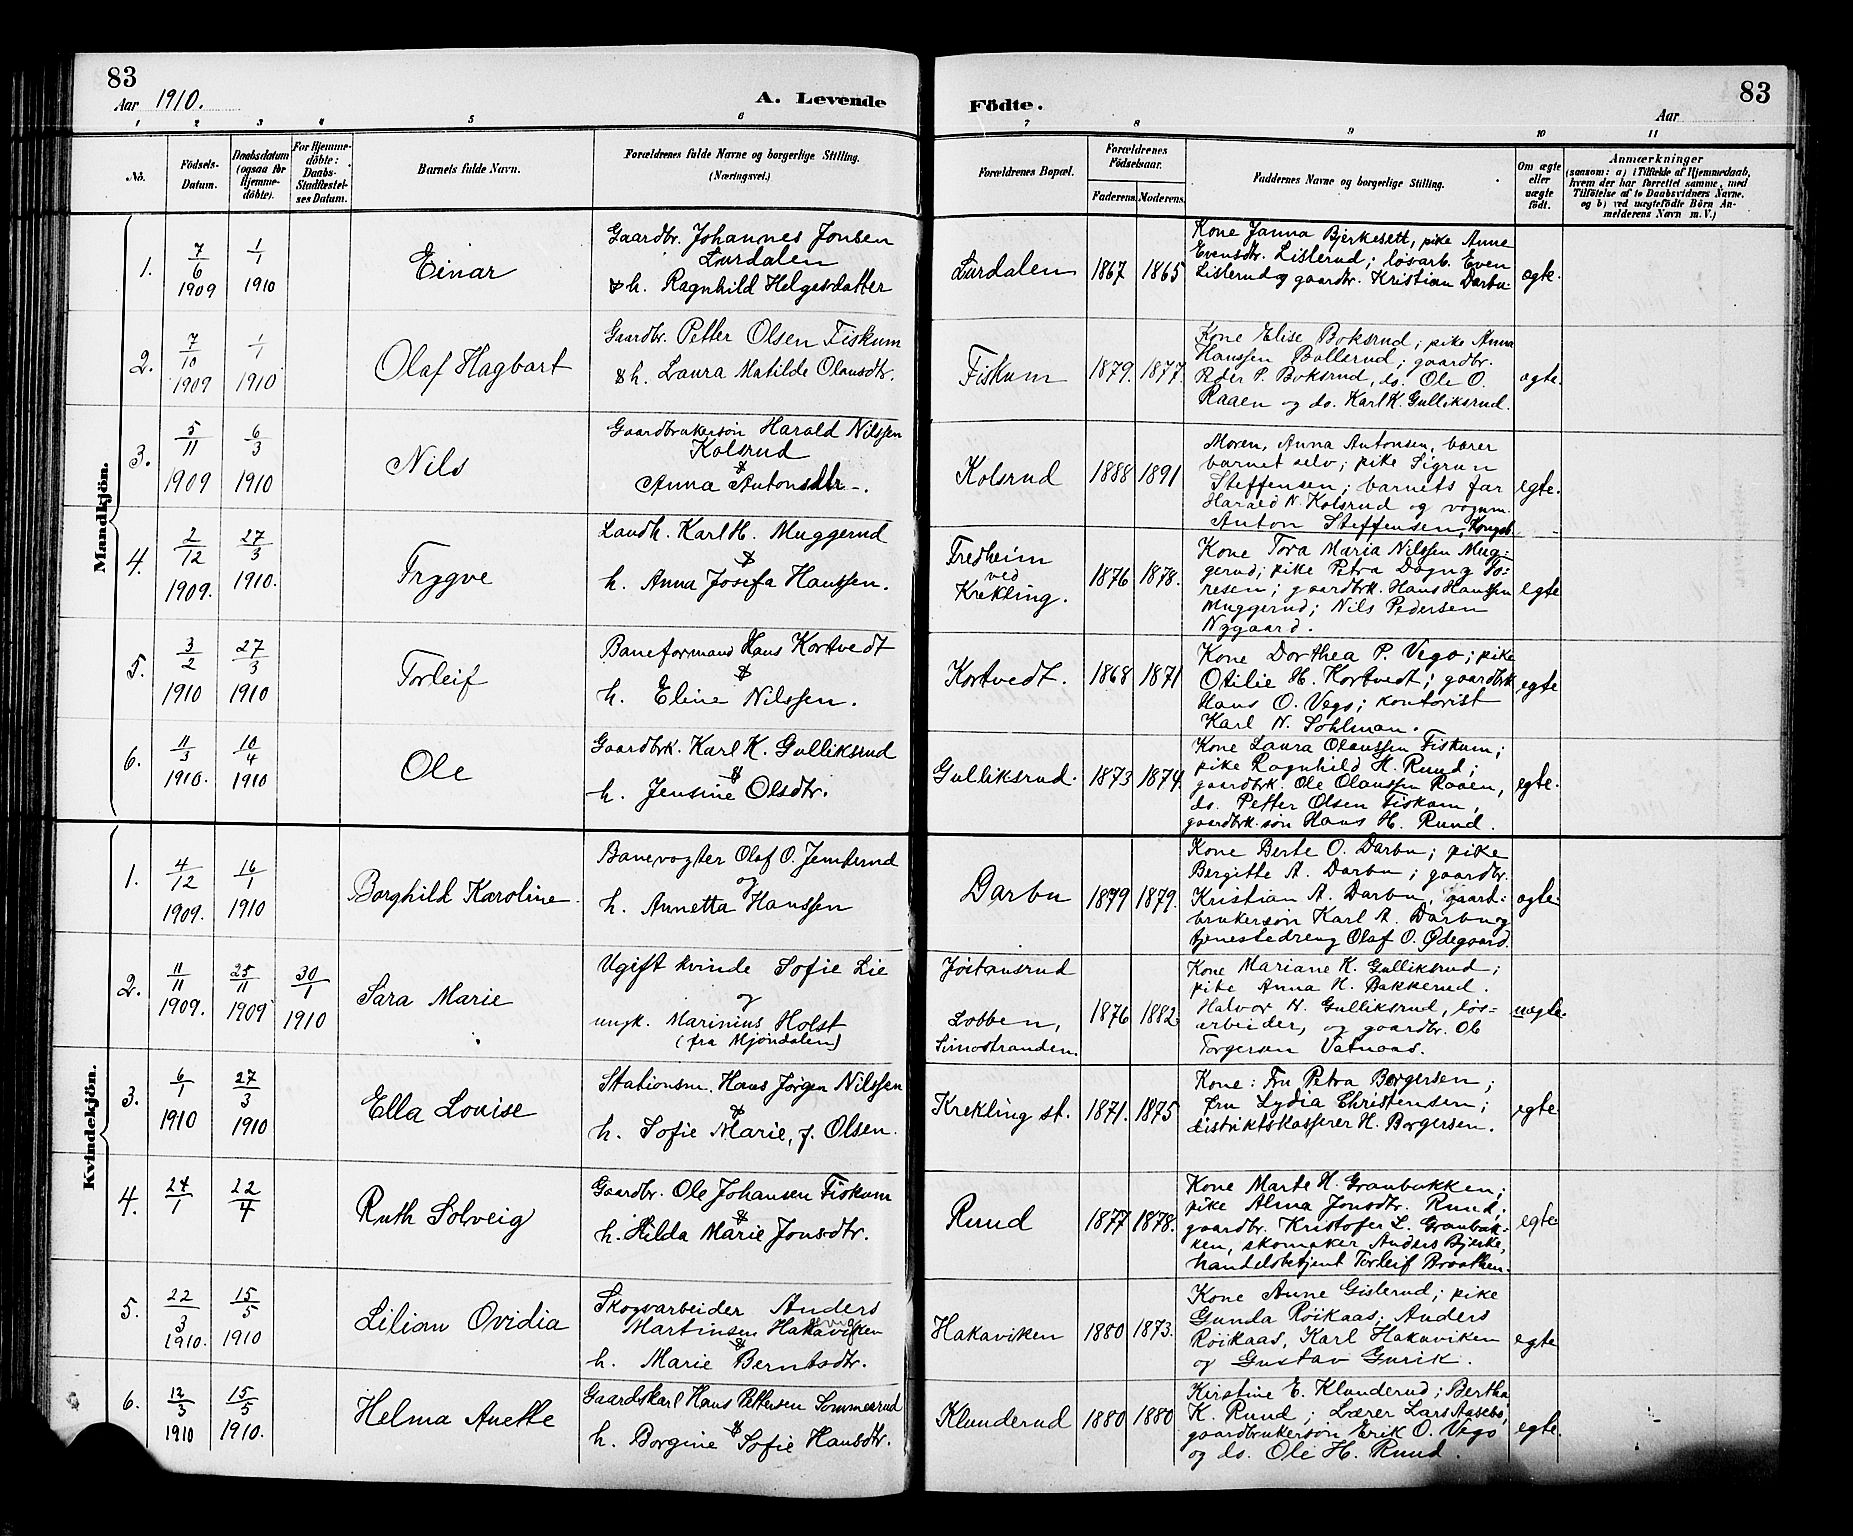 83
Aar 1910.
A. Levende
Födte.
83
Aar
1 2 3 4 5 6 7 8 9 10 11
No.
Födsels-
Datum.
Daabsdatum
(ogsaa for
Hjemme-
döbte).
For Hjemme-
döbte:
Daabs-
Stadfæstel-
ses Datum.
Barnets fulde Navn.
Forældrenes fulde Navne og borgerlige Stilling.
(Næringsvei.)
Forældrenes Bopæl.
Forældrenes
Födselsaar.
Faderens. Moderens.
Faddernes Navne og borgerlige Stilling.
Om ægte
eller
uægte
født.
Anmærkninger
(saasom: a) i Tilfælde af Hjemmedaab,
hvem der har forrettet samme, med
Tilföielse af to Daabsvidners Navne,
og b) ved uægtefödte Börn An-
melderens Navn m. V.)
Mandkjön.
1.
7/6
1909
1/1
1910
Einar
Gaardbr. Johannes Jonsen
Lurdalen
& h. Ragnhild Helgesdatter
Lurdalen
1867 1865
Kone Janna Bjerkesett, pike Anne
Evensdtr. Listerud; løsarb. Even
Listerud og gaardbr. Kristian Darbu.
egte.
2.
7/10
1909
1/1
1910.
Olaf Hagbart
Gaardbr. Petter Olsen Fiskum
& h. Laura Matilde Olausdtr.
Fiskum
1879. 1877.
Kone Elise Boksrud; pike Anna
Hanssen Bollerud; gaardbr.
Peder P. Boksrud, do. Ole O.
Raaen og do. Karl K. Gulliksrud.
egte.
3.
5/11
1909
6/3
1910
Nils
Gaardbrukersøn Harald Nilssen
Kolsrud
&
Anna Antonsdtr.
Kolsrud
1888 1891
Moren, Anna Antonsen, bærer
barnet selv; pike Sigrun
Steffensen; barnets far
Harald N. Kolsrud og vognm.
Anton Steffensen, Kongsb.
egte.
4.
2/12
1909.
27/3
1910.
Trygve
Landh. Karl H. Muggerud
&
h. Anna Josefa Hanssen.
Fredheim
ved
Krekling.
1876 1878.
Kone Tora Maria Nilssen Mug-
gerud; pike Petra Dagny To-
resen; gaardbrk. Hans Hanssen
Muggerud; Nils Pedersen
Nygaard.
egte
5.
3/2
1910
27/3
1910
Torleif
Baneformand Hans Kortvedt
&
h. Eline Nilssen.
Kortvedt.
1868 1871
Kone Dorthea P. Vego; pike
Otilie H. Kortvedt; gaardbrk
Hans O. Vego; kontorist
Karl N. Sohlman.
egte
6.
11/3
1910.
10/4
1910
Ole
Gaardbrk. Karl K. Gulliksrud
&
h. Jensine Olsdtr.
Gulliksrud.
1873 1874.
Kone Laura Olaussen Fiskum;
pike Ragnhild H. Ruud;
gaardbrk. Ole Olaussen Raaen,
do. Petter Olsen Fiskum,
gaardbrk.søn Hans H. Ruud.
egte.
Kvindekjön.
1.
4/12
1909.
16/1
1910
Borghild Karoline.
Banevogter Olaf O. Jemterud
og
h. Annetta Hanssen
Darbu
1879 1879.
Kone Berte O. Darbu; pike
Bergitte A. Darbu; gaardbr.
Kristian A. Darbu, gaard-
brukersøn Karl A. Darbu og
tjenestedreng Olaf O. Ødegaard.
egte.
2.
11/11
1909.
25/11
1909
30/1
1910
Sara Marie
Ugift kvinde Sofie Lie
og
ungk. Marinius Holst
(fra Mjøndalen)
Jøstansrud
Lobben,
Simostranden.
1876 1882
Kone Mariane K. Gulliksrud;
pike Anna K. Bakkerud.
Halvor H. Gulliksrud, løs-
arbeider, og gaardbr. Ole
Torgersen Vatnaas.
uegte.
3.
6/1
1910
27/3
1910
Ella Louise
Stationsm. Hans Jørgen Nilssen
&
h. Sofie Marie, f. Olsen.
Krekling st.
1871. 1875
Kone: Fru Petra Borgersen;
fru Lydia Christensen;
distriktskasserer H. Borgersen.
egte
4.
24/1
22/4
Ruth Solveig
Gaardbr. Ole Johansen Fiskum
&
h. Hilda Marie Jonsdtr.
Ruud
1877 1878.
Kone Marte H. Granbakken;
pike Alma Jonsdtr. Ruud;
gaardbr. Kristofer L. Granbak-
ken, skomaker Anders Bjerke,
handelsbetjent Torleif Braathen.
egte
5.
22/3
1910.
15/5
1910
Lilian Ovidia
Skogsarbeider Anders
Martinsen Hakaviken
&
h. Marie Berntsdtr.
Hakaviken
1880 1873.
Kone Anne Gislerud; pike
Gunda Røikaas; Anders
Røikaas, Karl Hakaviken
og Gustav Gurik.
egte
6.
12/3
1910
15/5
1910.
Helma Anette
Gaardskarl Hans Pettersen Sommerud
&
h. Borgine Sofie Hansdtr.
Klunderud
1880 1880
Kirstine E. Klunderud; Bertha
K. Ruud; Lærer Lars Aasebø,
gaardbrukersøn Erik O. Vego
og do. Ole H. Ruud.
egte.